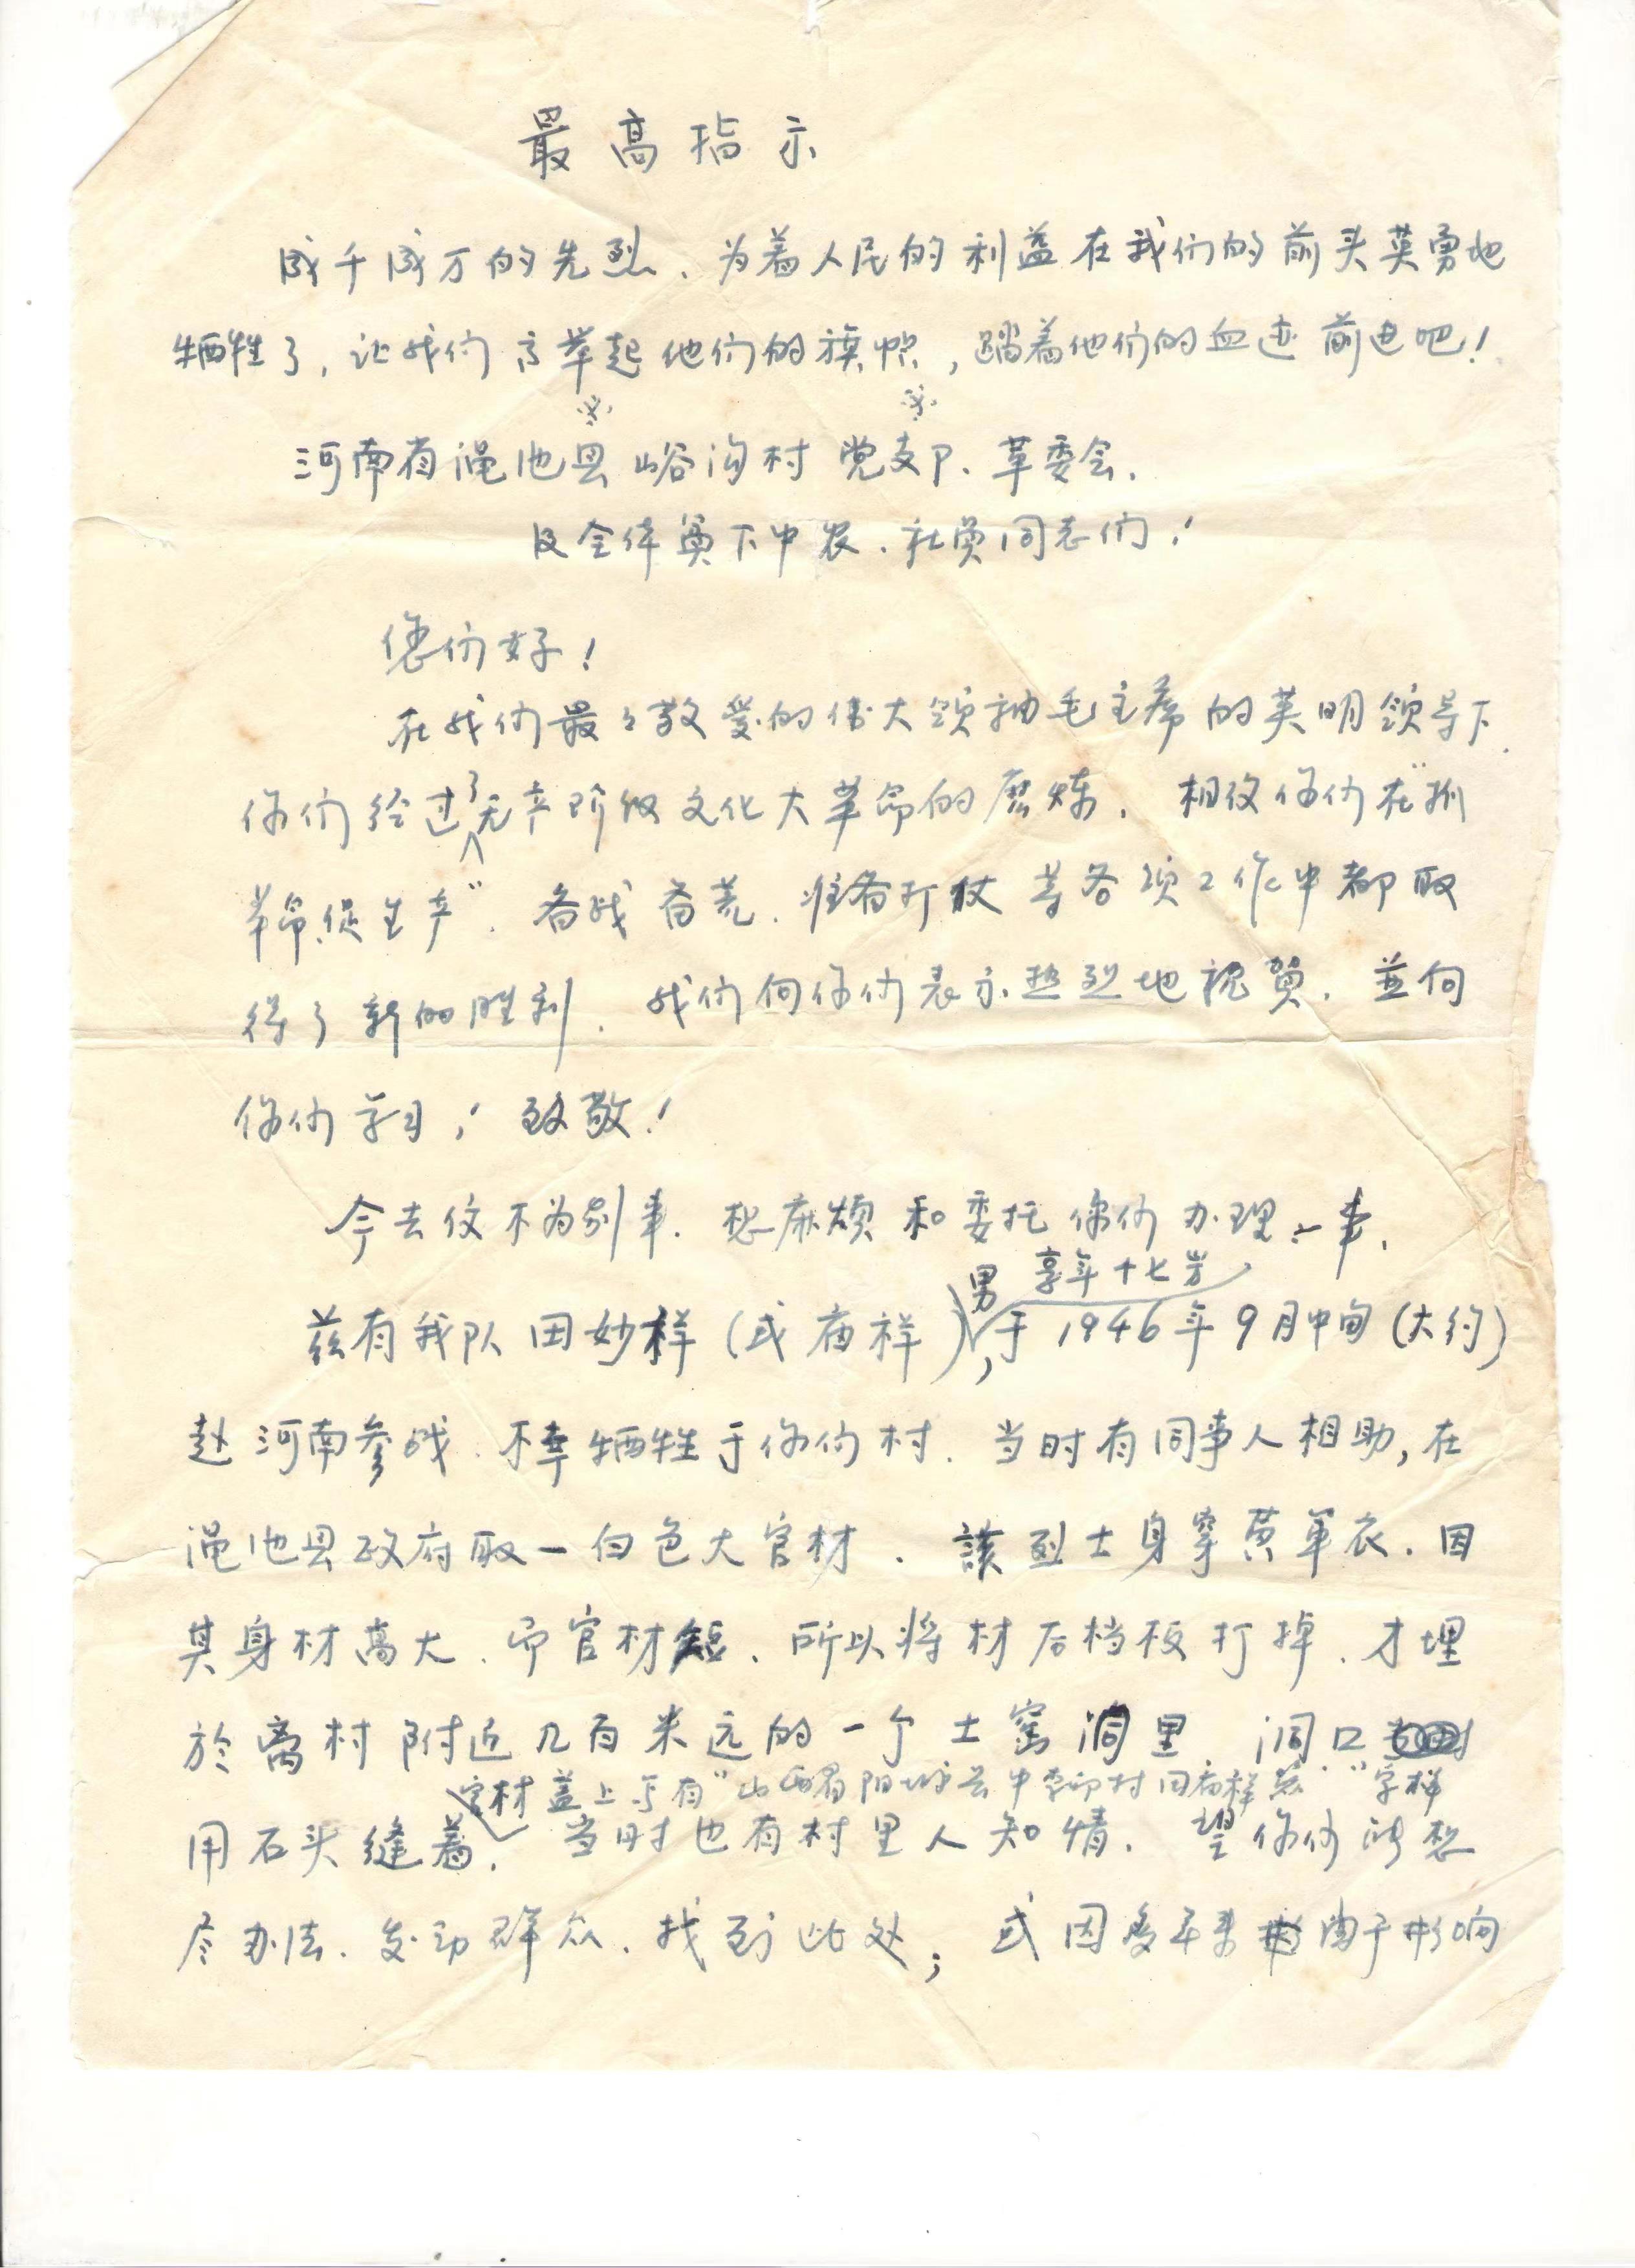 最高指示
成千成万的先烈、为着人民的利益在我们的前头英勇地
牺牲了，让我们高举起他们的旗帜，踏着他们的血迹前进吧！
河南省渑池县峪沟村党支部、革委会、
及全体贫下中农、社员同志们！
您们好！
在我们最々敬爱的伟大领袖毛主席的英明领导下、
你们经过了无产阶级文化大革命的磨炼、相役你们在"抓
革命促生产"、备战备荒、准备打仗等各项工作中都取
得了新的胜利、我们向你们表示热烈地祝贺、並向
你们学习！致敬！
今去信不为别事、想麻烦和委托你们办理一事、
男 享年十七岁
兹有我队田妙样（或庙祥），于1946年9月中旬（大约）
赴河南参战、不幸牺牲于你们村、当时有同事人相助，在
渑池县政府取一白色大官材、該烈士身穿黄军衣、因
其身材高大、而官材短、所以将材后档板打掉、才埋
於离村附近几百米远的一个土窑洞里、洞口
官材盖上写有"山西省阳城县中李邱村田庙祥灵"字样
用石头缝着、当时也有村里人知情、望你们能想
尽办法、发动群众、找到此处；或因多年来由于影响